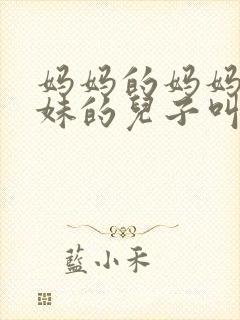 妈妈的妈妈
妹的兒子叫
藍小禾